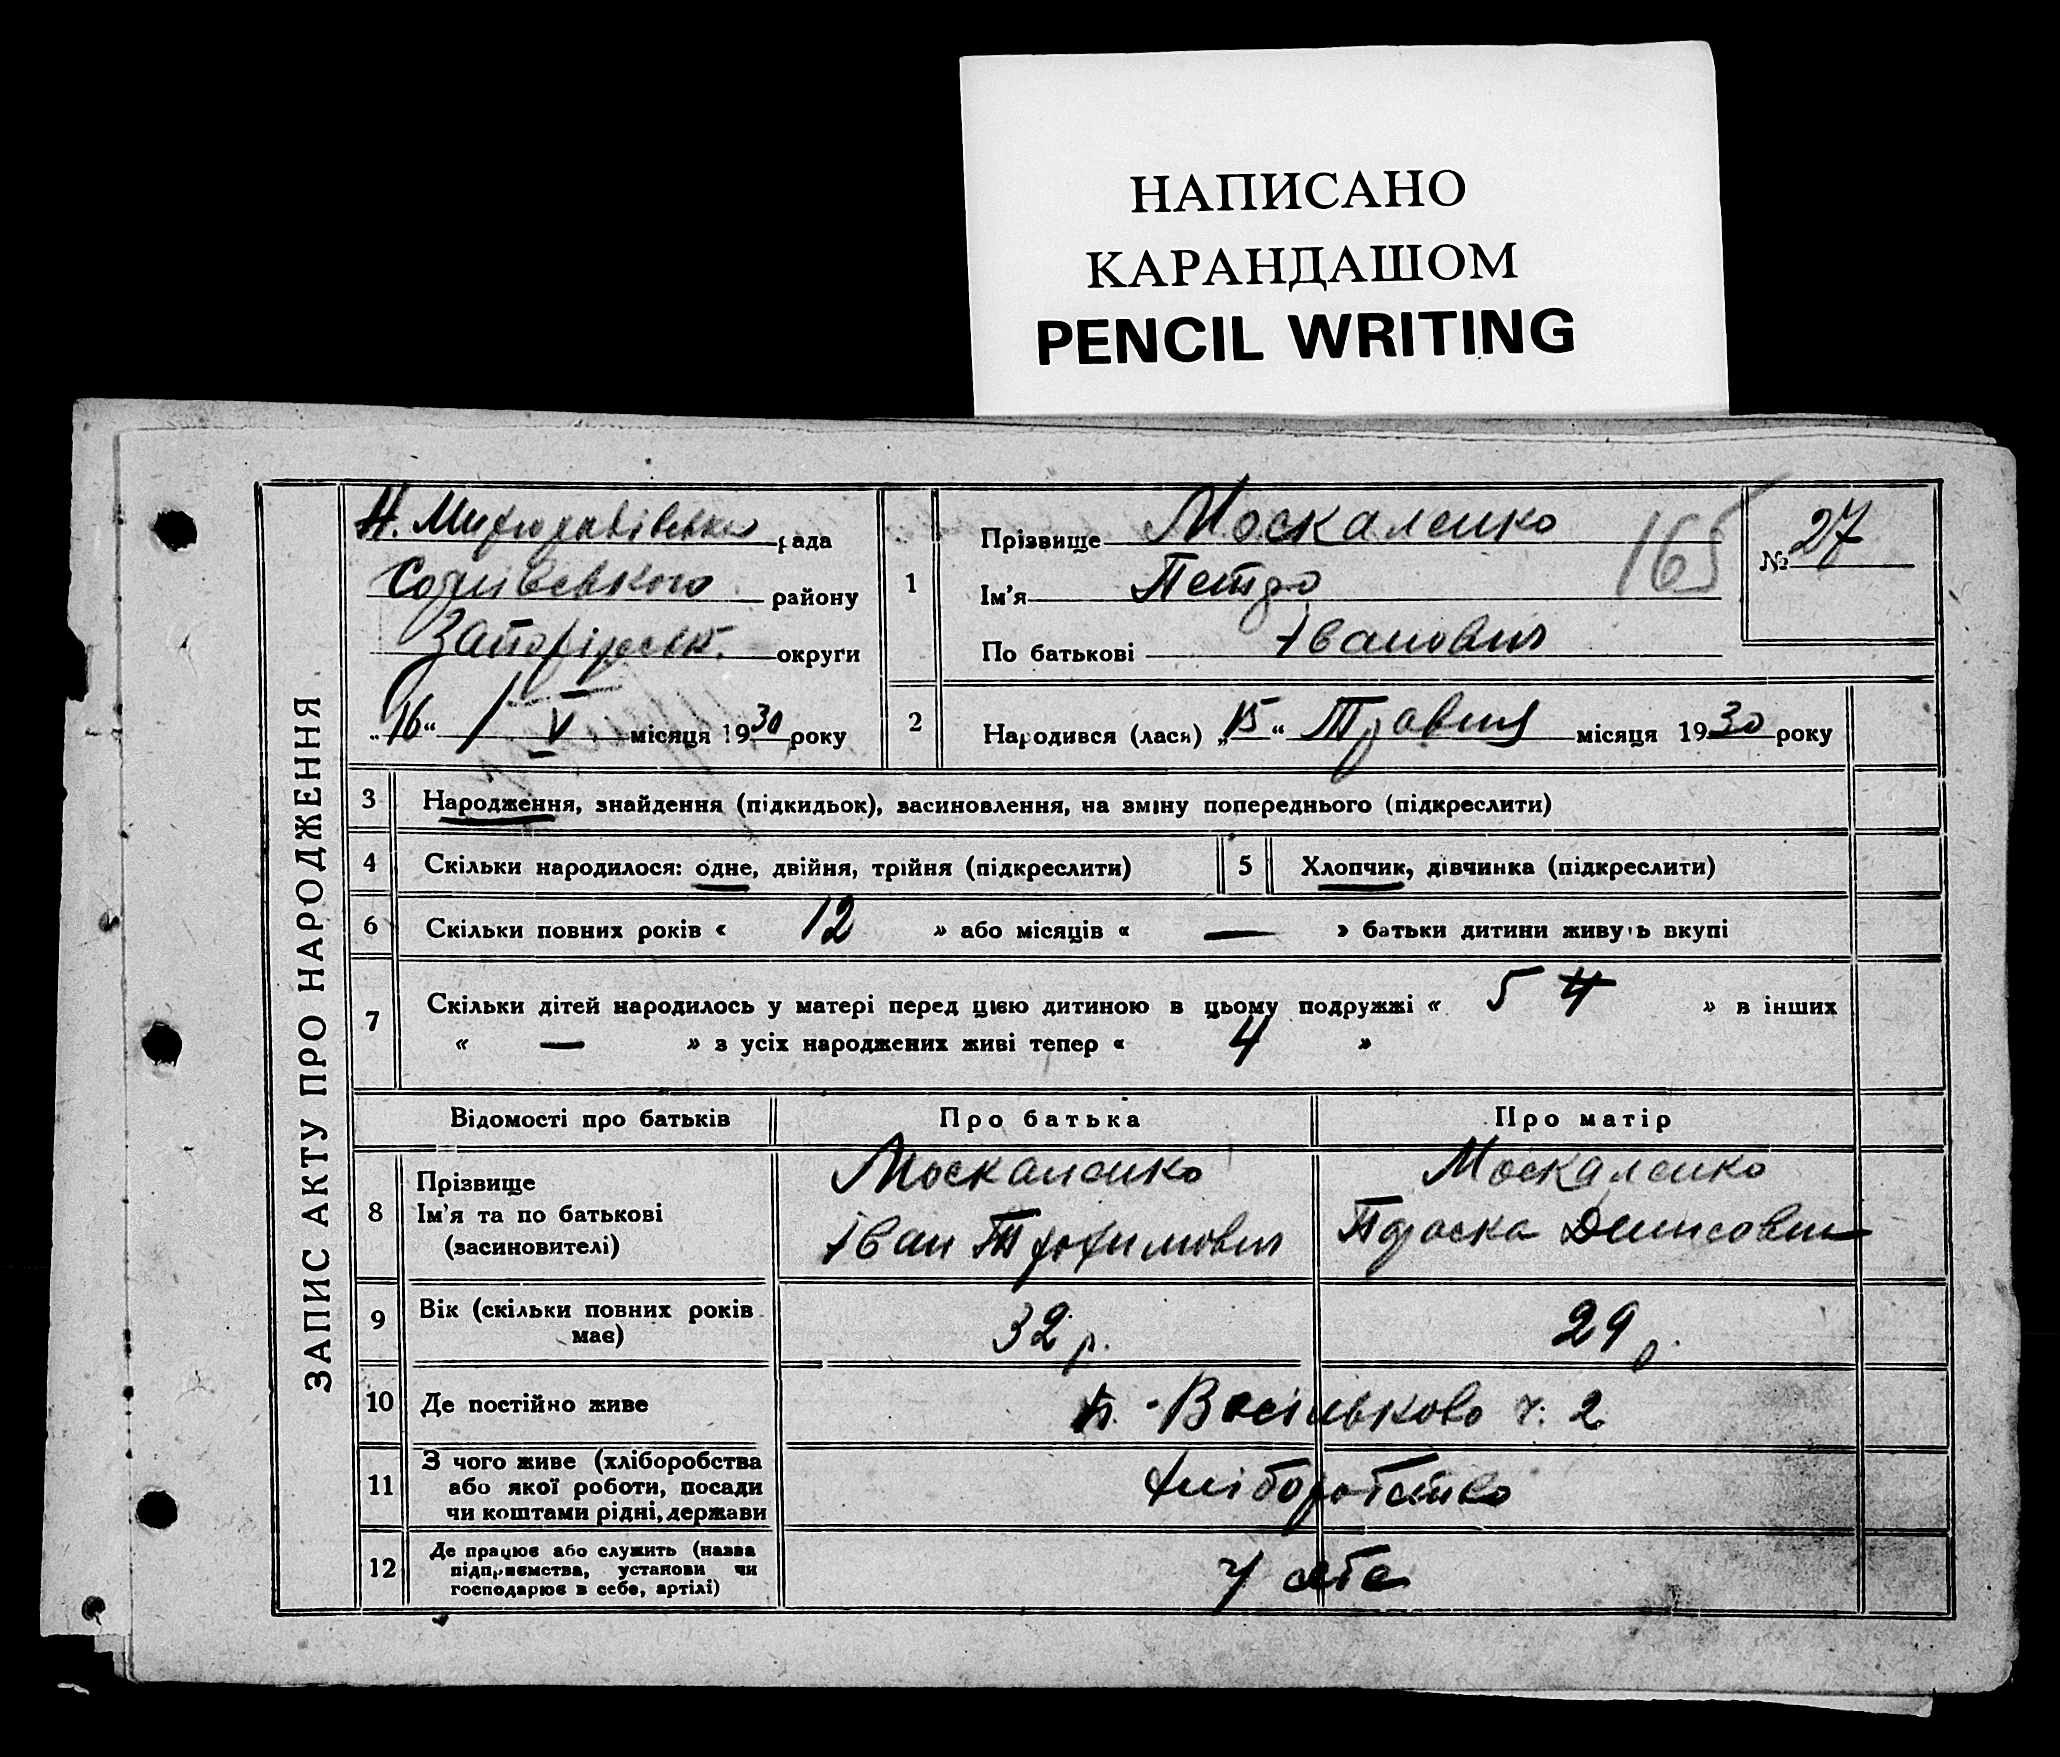 НАПИСАНО
КАРАНДАШОМ
PENCIL WRITING
ЗАПИС АКТУ ПРО НАРОДЖЕННЯ
рада
Софиевського району
Запоріжськ. округи
„16“ / V місяця 1930 року
1
Прізвище Москаленко
Ім'я Петро
По батькові Іванович
165
№ 27
2
Народився (лася) „15“ Травня місяця 1930 року
3 Народження, знайдення (підкидьок), засиновлення, на зміну попереднього (підкреслити)
4 Скільки народилося: одне, двійня, трійня (підкреслити)
5 Хлопчик, дівчинка (підкреслити)
6 Скільки повних років « 12 » або місяців « — » батьки дитини живуть вкупі
7 Скільки дітей народилось у матері перед цією дитиною в цьому подружжі « 5 4 » в інших
« — » з усіх народжених живі тепер « 4 »
Відомості про батьків Про батька Про матір
8 Прізвище
Ім'я та по батькові
(засиновителі)
Москаленко
Іван Трохимович
Москаленко
Параска Денисовна
9 Вік (скільки повних років
має)
32 р.
29 р.
10 Де постійно живе
Васільково ч. 2
11 З чого живе (хліборобства
або якої роботи, посади
чи коштами рідні, держави
хліборобство
12 Де працює або служить (назва
підприємства, установи чи
господарює в себе, артілі)
у себе